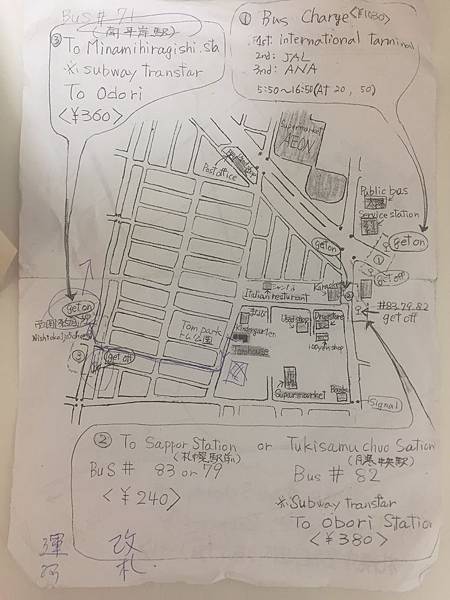 Bus # 71
(南平岸駅)
③ To Minamihiragishi.sta
※subway transtar
To Odori
<¥360>
① Bus Charge <¥1080>
1st: international tarminal
2nd: JAL
3nd: ANA
5:50~16:50 (At 20, 50)
Supermarket
AEON
Post office
Public bas
Service station
get on
get on
①
get off
#83.79.82
get off
get on
Nishioka
③
get off
Indian resturant
Kindergarten
Tom park
トム公園
Tomhouse
Used shop
Drugstore
100yen shop
Supurmarket
Signal
② To Sappor Station or Tukisamu chuo Sation
(札幌駅前) (月寒中央駅)
Bus # 83 or 79 Bus # 82
<¥240>
※Subway transtar
To Obori Station
<¥380>
改
札